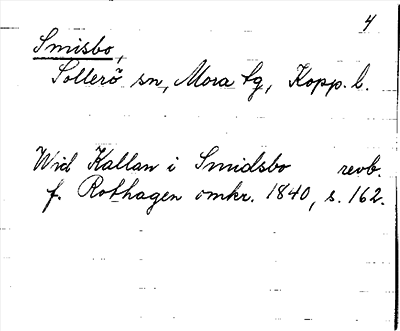 4
Smisbo,
Sollerö sn, Mora tg, Kopp. l.
Wid Kallan i Smidsbo revb.
f. Rothagen omkr. 1840, s. 162.